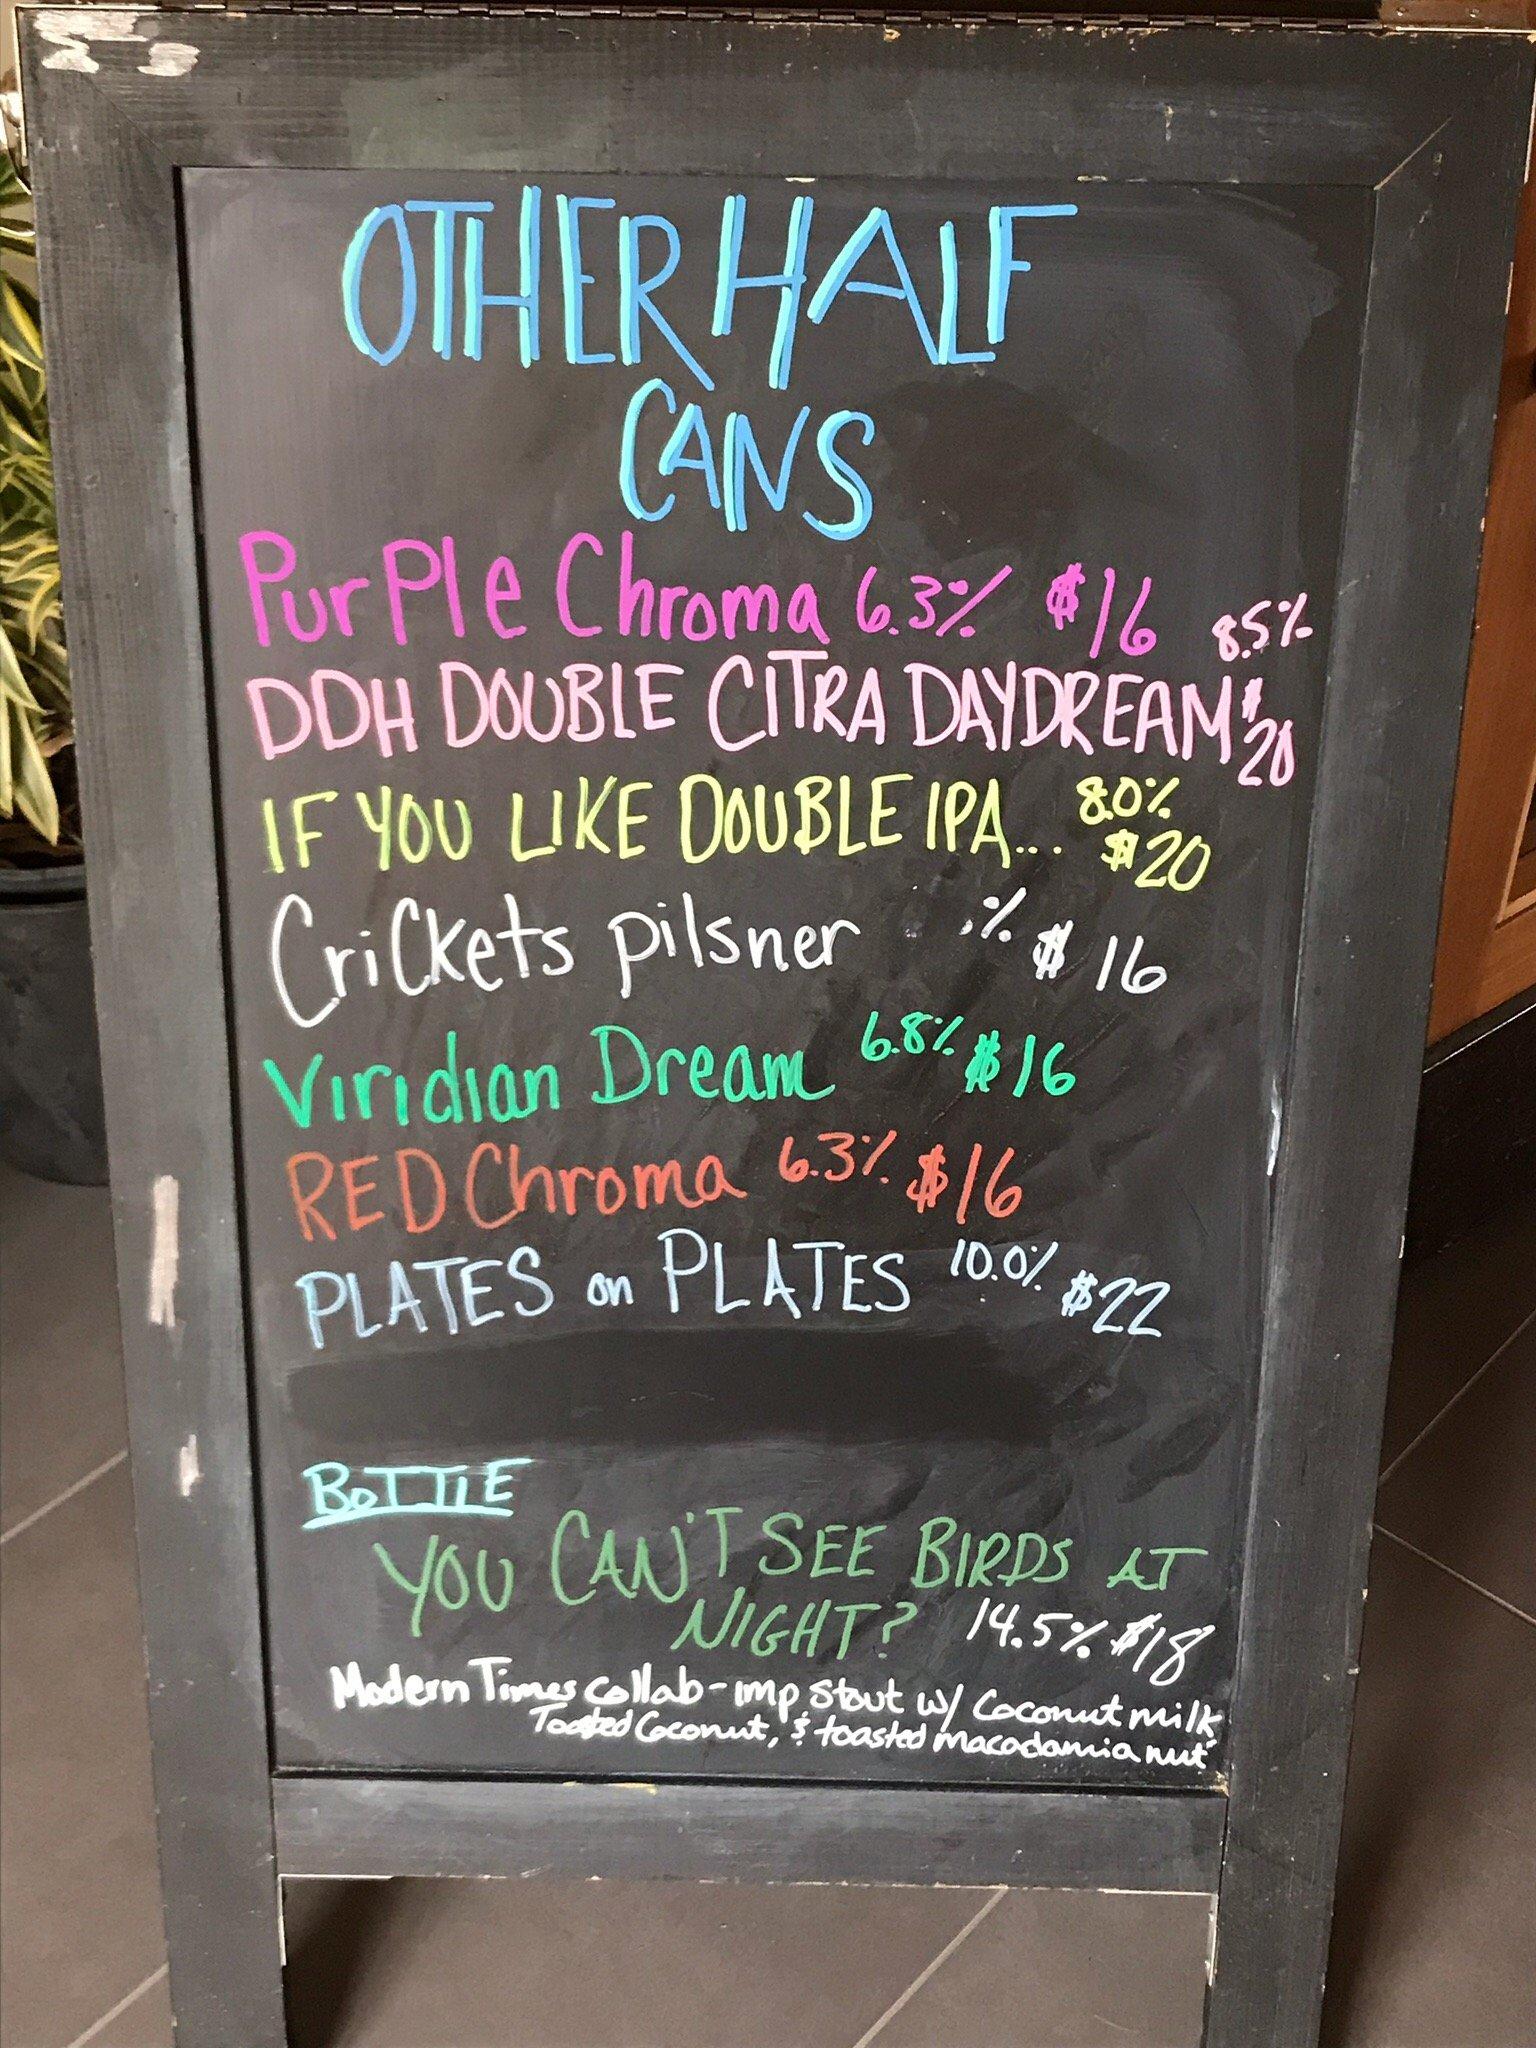 OTHER HALF
CANS
Purple Chroma 6.3% $16
8.5%
DDH DOUBLE CITRA DAYDREAM $20
IF YOU LIKE DOUBLE IPA... 8.0% $20
Crickets pilsner .% $16
Viridian Dream 6.8% $16
RED Chroma 6.3% $16
PLATES on PLATES 10.0% $22
BOTTLE
YOU CAN'T SEE BIRDS AT
NIGHT? 14.5% $18
Modern Times collab - imp. Stout w/ Coconut milk,
Toasted Coconut, & toasted macadamia nut